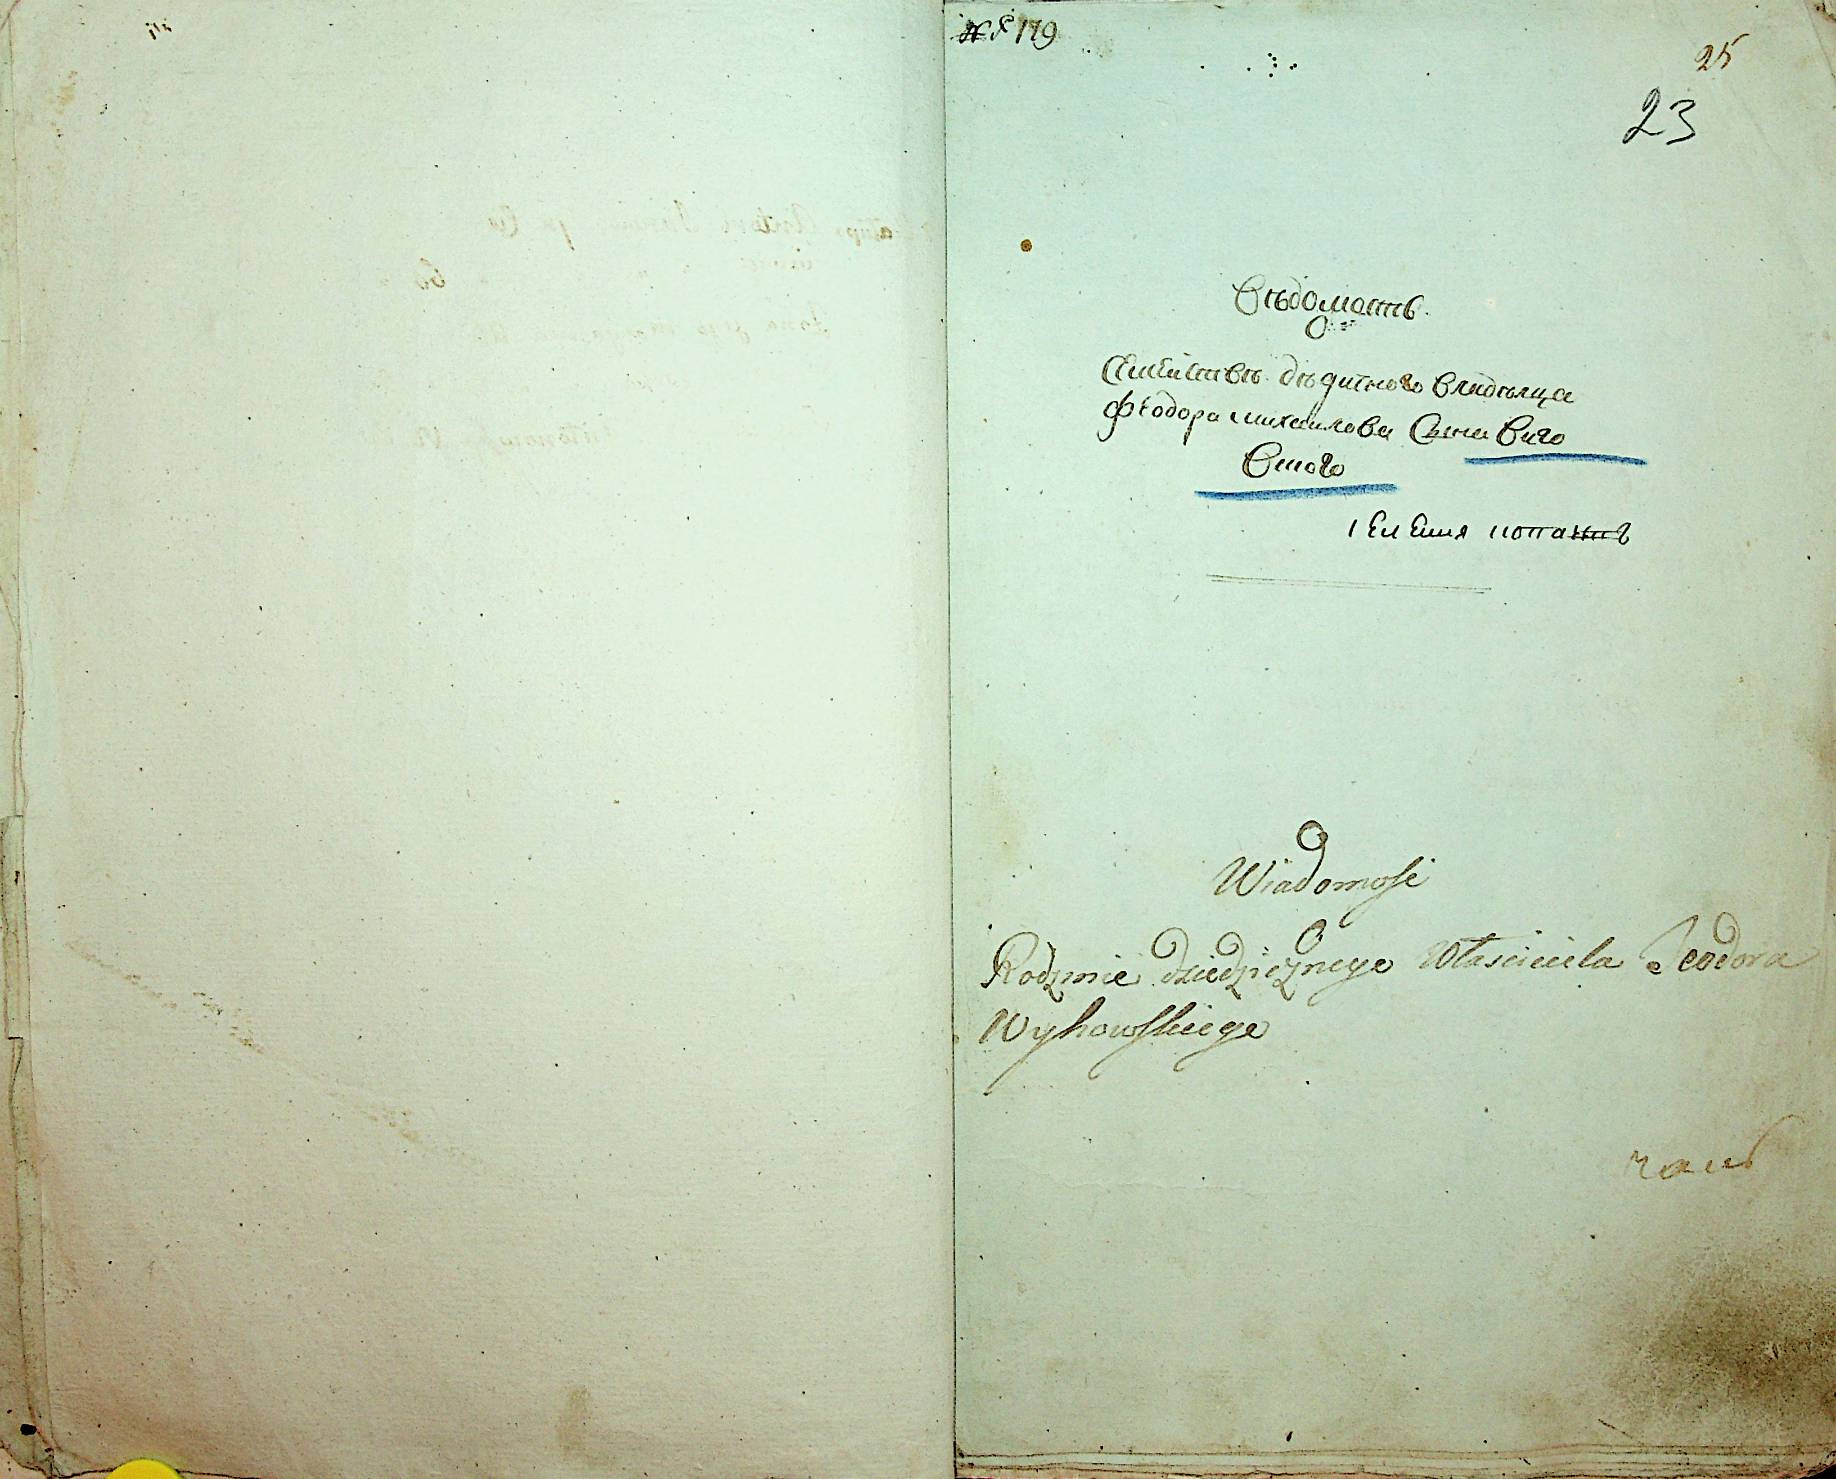 № 179
25
23
Вѣдомость
О
Семействѣ дѣдичного владѣлца
Феодора михаилова Сына Виго
вского
Wiadomość
O
Rodzinie dziedzicznego Własciciela Teodora
Wyhowskiego